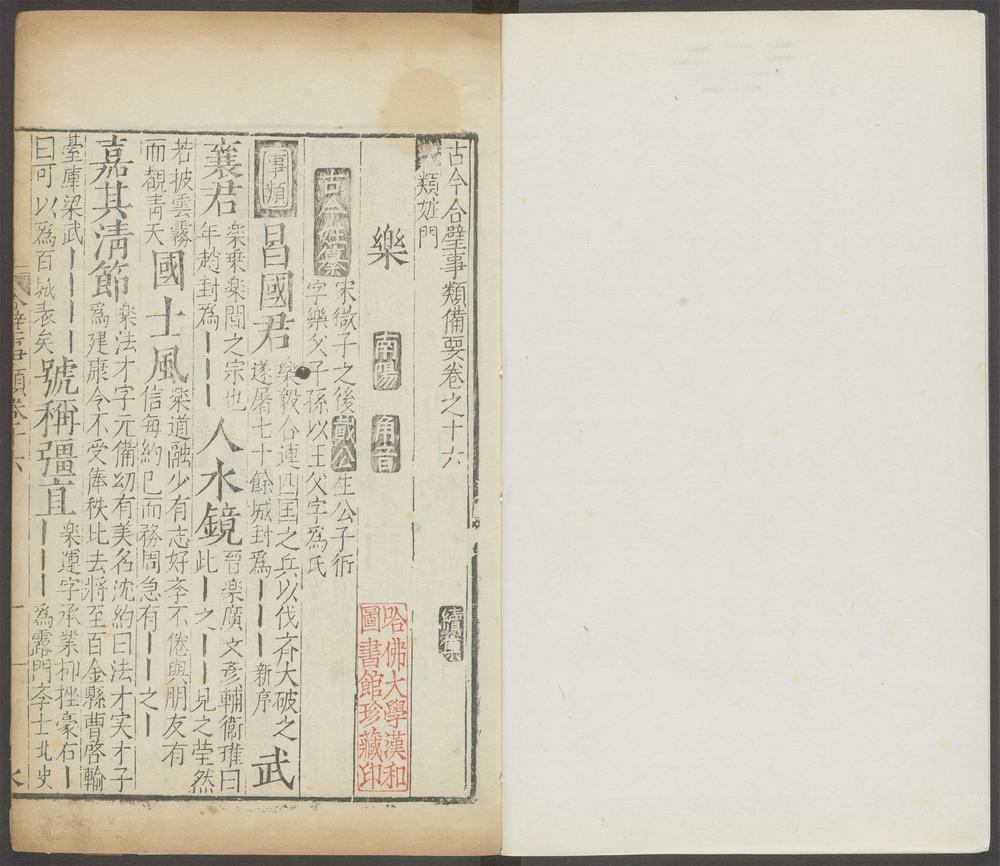 古今合璧事類備要卷之十六 續集
類姓門
樂 南陽 角音
古今姓纂 宋微子之後戴公生公子衎
字樂父子孫以王父字爲氏
事類 昌國君 樂毅合連四国之兵以伐斉大破之
遂屠七十餘城封爲｜｜｜新序 武
襄君 楽乗楽間之宗也
年趙封爲｜｜｜ 人水鏡 晉楽廣文彦輔衞瓘曰
此｜之｜｜見之瑩然
若披雲霧
而覩青天 國士風 楽道融少有志好斈不倦與朋友有
信每約己而務周急有｜｜之｜
嘉其清節 楽法才字元備幼有美名沈約曰法才実才子
爲建康令不受俸秩比去將至百金縣曹啓輸
臺庫梁武｜｜｜｜
曰可以爲百城表矣 號稱彊直 楽運字承業抑挫豪右｜
｜｜｜爲露門斈士北史
哈佛大學漢和
圖書館珍藏印